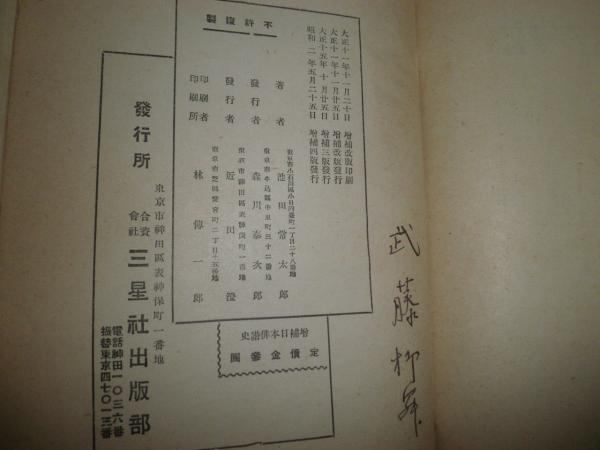 不許複製
大正十一年十一月二十日 增補改版印刷
大正十一年十一月廿五日 增補改版發行
大正十五年十月廿五日 增補三版發行
昭和二年五月二十五日 增補四版發行
東京市小石川區小日向臺町一丁目二十八番地
著者 池田常太郎
發行者 森川泰次郎
東京市神田區表神保町一番地
發行者 近田澄
印刷者
印刷所 林傳一郎
增補日本俳諧史
定價金參圓
東京市神田區表神保町一番地
發行所 合資會社 三星社出版部
電話神田一〇三六番
振替東京四七〇一三番
武藤